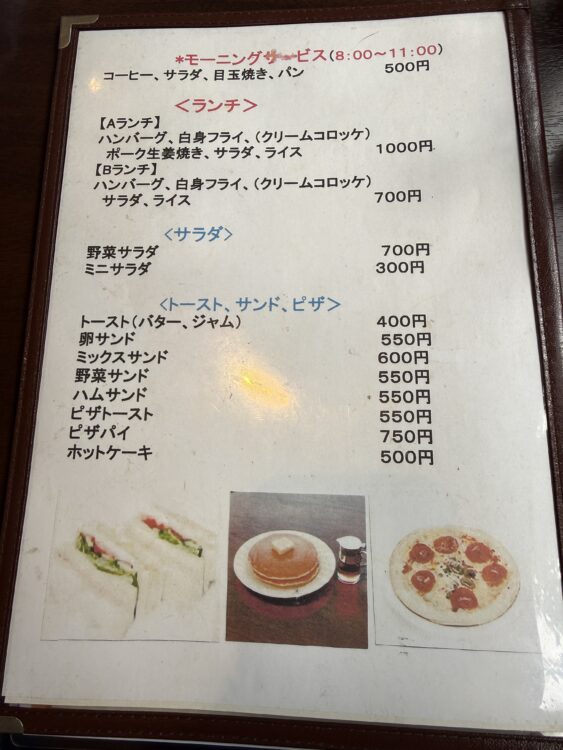 *モーニングサービス(8:00~11:00)
コーヒー、サラダ、目玉焼き、パン 500円
＜ランチ＞
【Aランチ】
ハンバーグ、白身フライ、(クリームコロッケ)
ポーク生姜焼き、サラダ、ライス 1000円
【Bランチ】
ハンバーグ、白身フライ、(クリームコロッケ)
サラダ、ライス 700円
＜サラダ＞
野菜サラダ 700円
ミニサラダ 300円
＜トースト、サンド、ピザ＞
トースト(バター、ジャム) 400円
卵サンド 550円
ミックスサンド 600円
野菜サンド 550円
ハムサンド 550円
ピザトースト 550円
ピザパイ 750円
ホットケーキ 500円